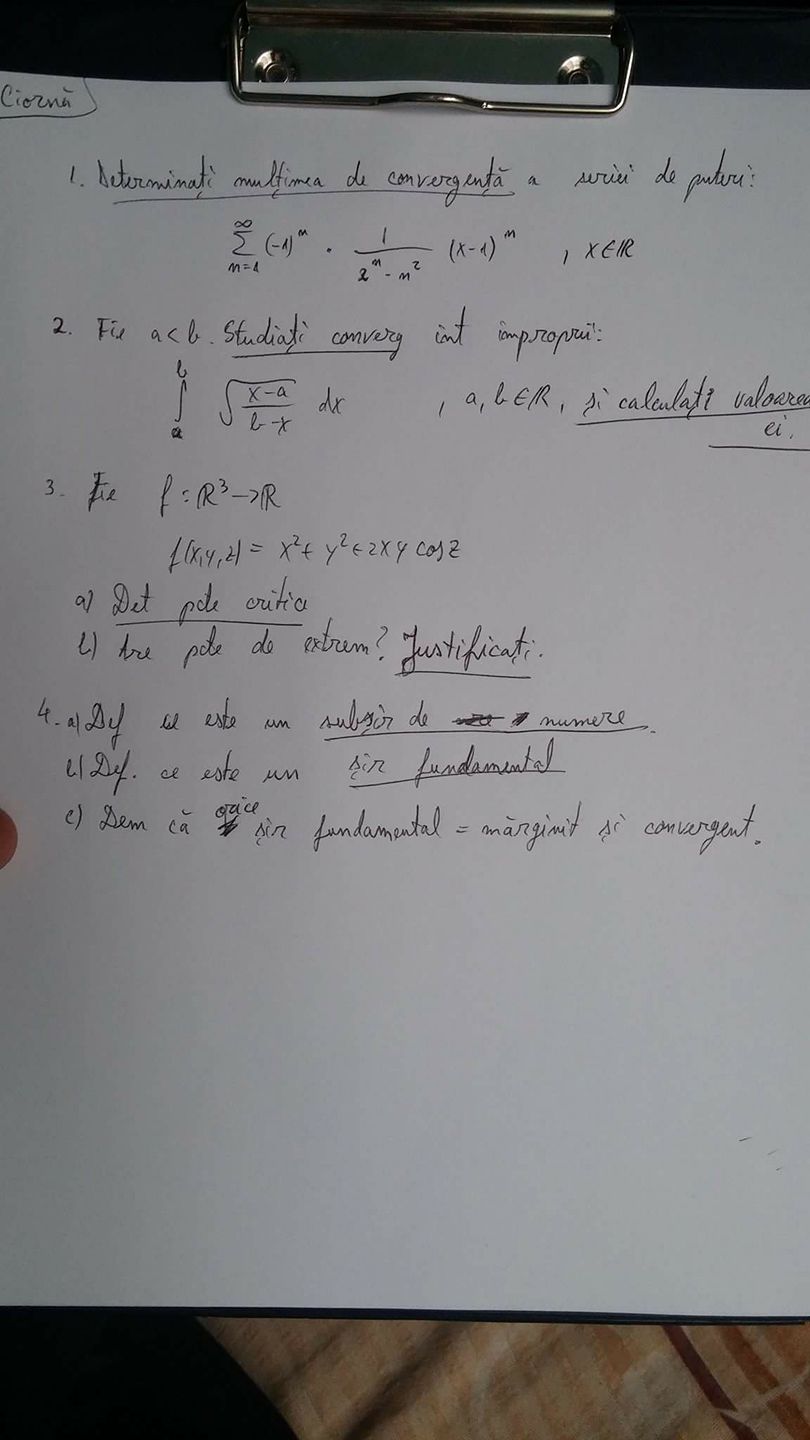 Ciornă
1. Determinați mulțimea de convergență a seriei de puteri:
∞ ∑ n=1 (-1)^n · 1/(2^n - n^2) (x-1)^n , x∈ℝ
2. Fie a<b. Studiați converg int improprii:
∫_a^b √((x-a)/(b-x)) dx , a, b∈ℝ, și calculați valoarea
ei.
3. Fie f: ℝ^3→ℝ
f(x,y,z) = x^2+ y^2+2xy cosz
a) Det pcte critice
b) Are pcte de extrem? Justificați.
4. a) Def ce este un subșir de numere.
b) Def. ce este un șir fundamental
c) Dem că orice șir fundamental = mărginit și convergent.